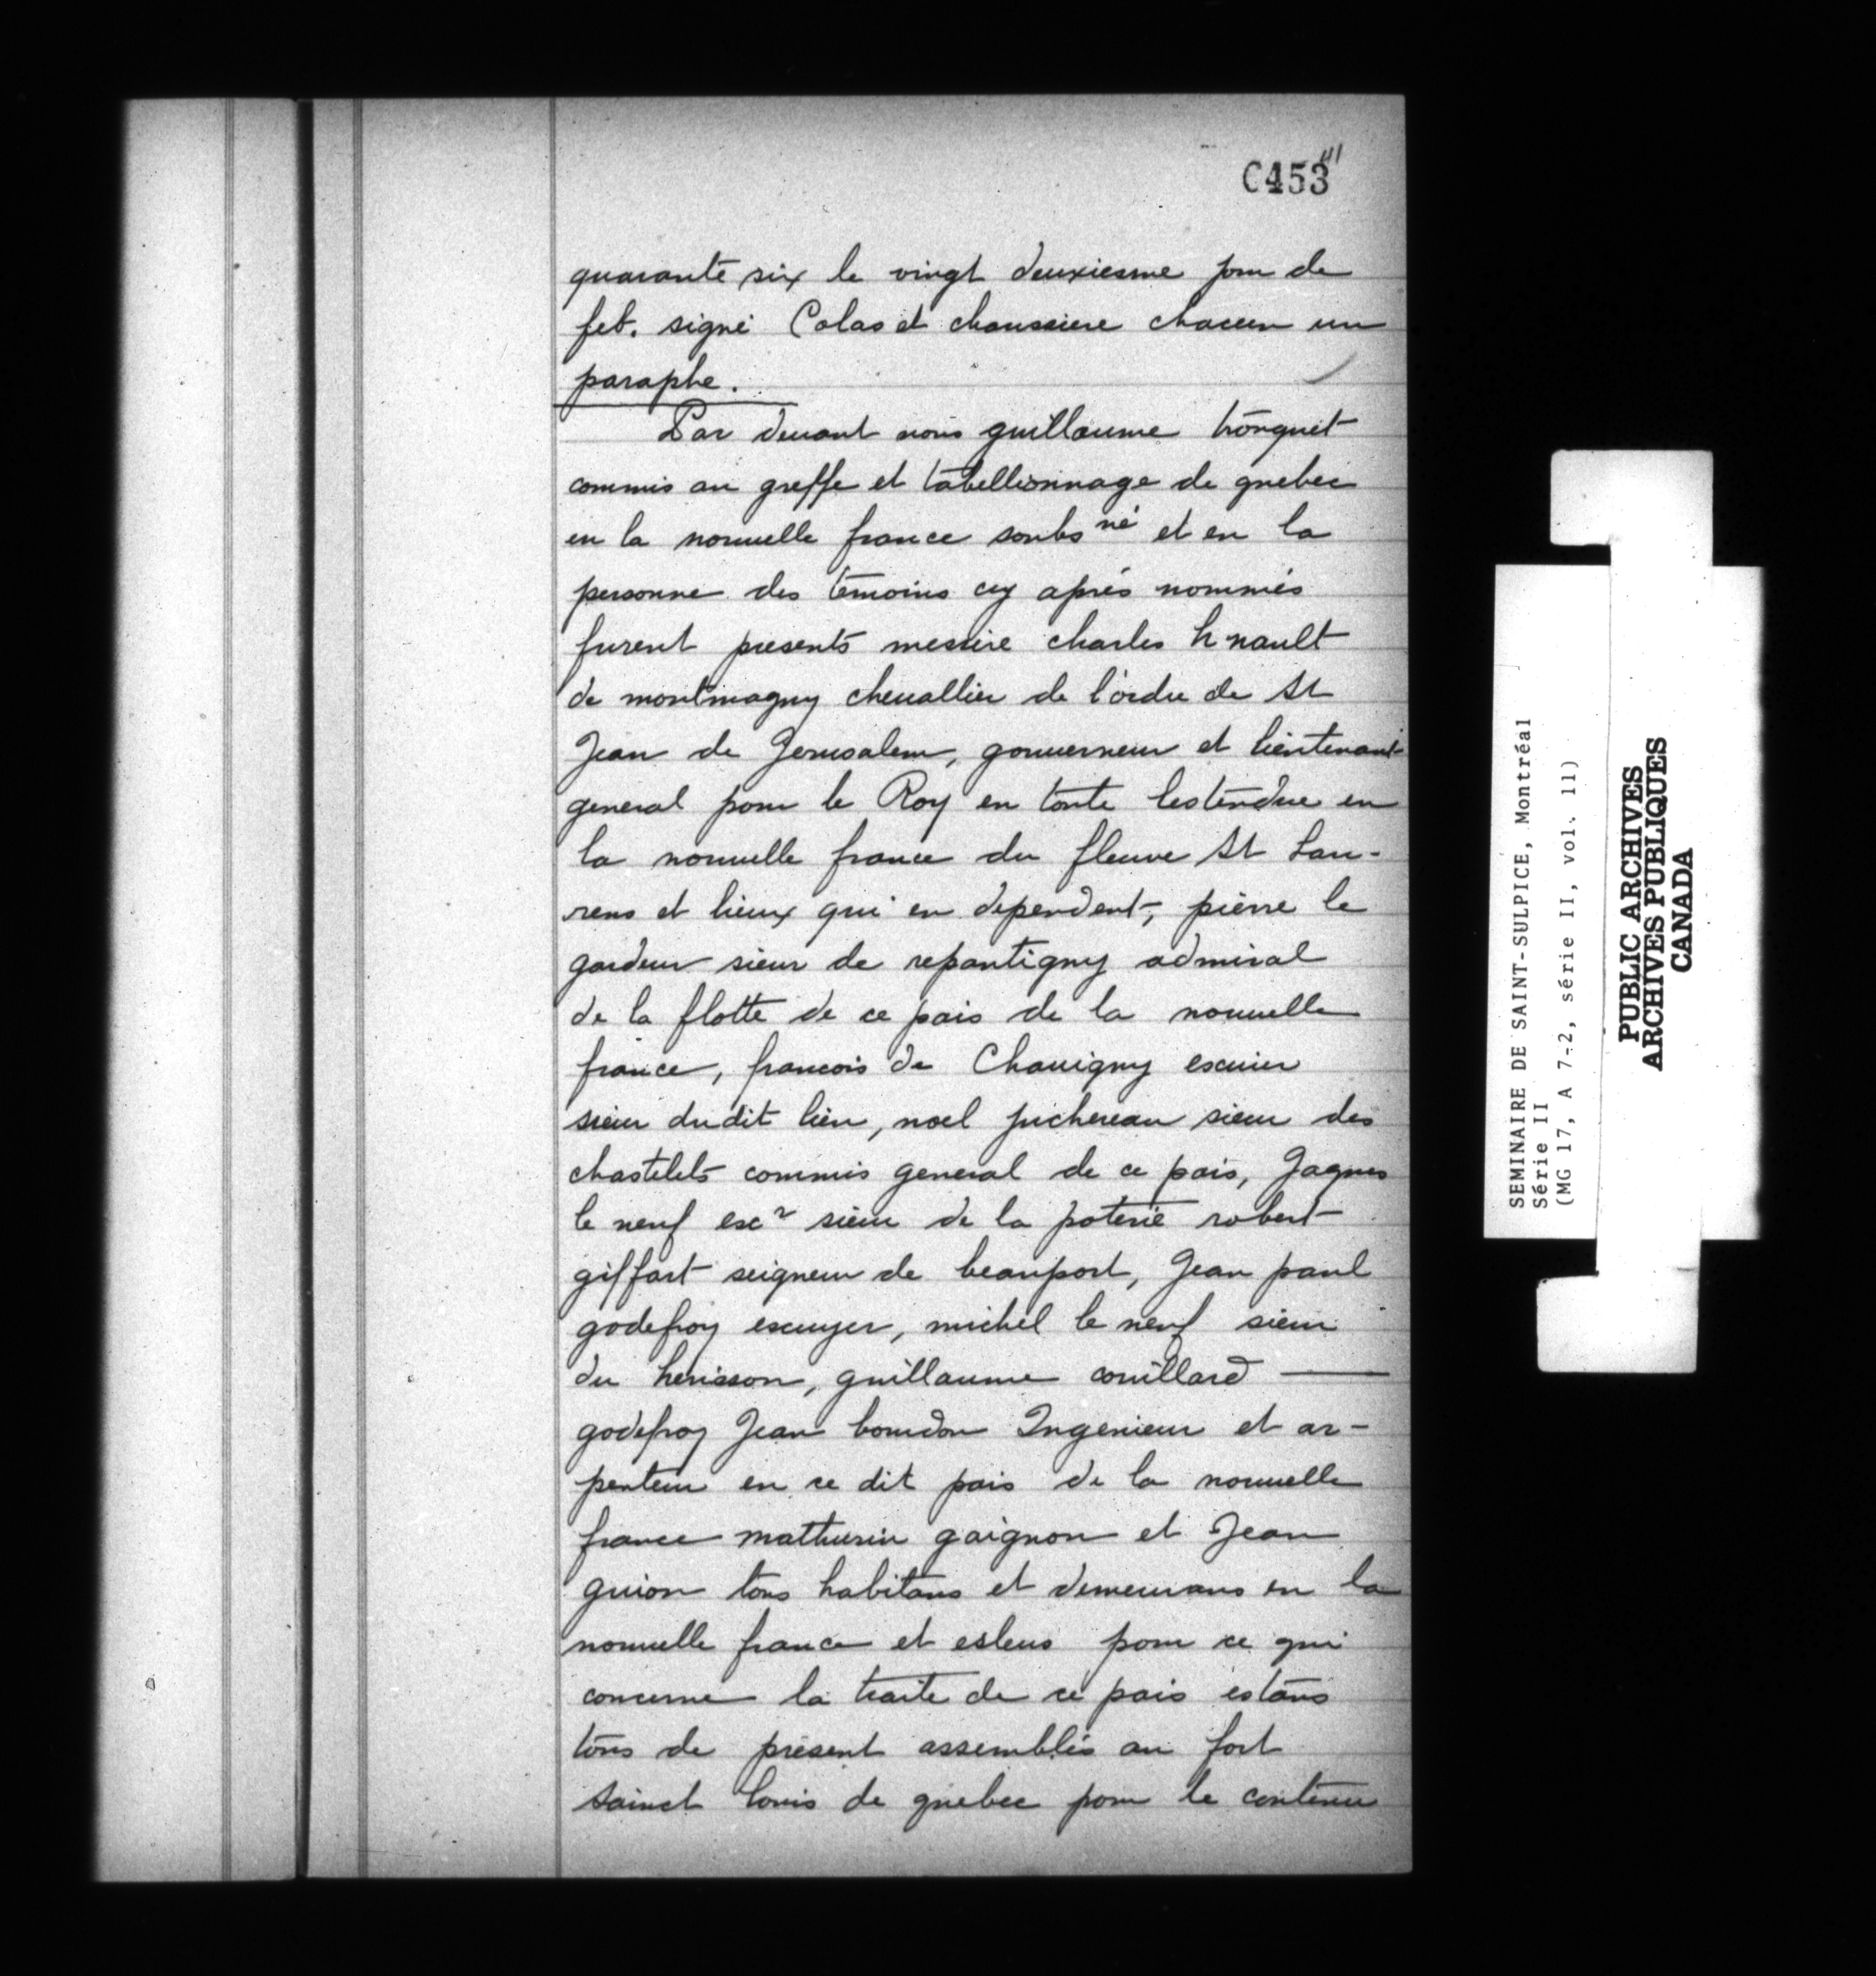 C453
41
quarante six le vingt deuxiesme jour de
feb. signé Colas et chaussiere chacun un
paraphe.
Par deuant nous guillaume tronquet
commis au greffe et tabellionnage de quebec
en la nouuelle france soubs né et en la
personne des temoins cy aprés nommés
furent presents messire charles h nault
de montmagny cheuallier de l'ordre de St
Jean de Jerusalem, gouuerneur et lieutenant
general pour le Roy en toute lestendue en
la nouuelle france du fleuve St Lau-
rens et lieux qui en dependent, pierre le
gardeur sieur de repantigny admiral
de la flotte de ce pais de la nouuelle
france, francois de Chauigny escuier
sieur dudit lieu, noel juchereau sieur des
chastelets commis general de ce pais, Jaques
le neuf escr sieur de la poterie robert
giffart seigneur de beauport, Jean paul
godefroy escuyer, michel le neuf sieur
du herisson, guillaume couillard —
godefroy Jean bourdon Ingenieur et ar-
penteur en ce dit pais de la nouuelle
france mathurin gaignon et Jean
guion tous habitans et demeurans en la
nouuelle france et esleus pour ce qui
concerne la traite de ce pais estans
tous de présent assemblés au fort
sainct louis de quebec pour le contenu
SEMINAIRE DE SAINT-SULPICE, Montréal
Série II
(MG 17, A 7-2, série II, vol. 11)
PUBLIC ARCHIVES
ARCHIVES PUBLIQUES
CANADA